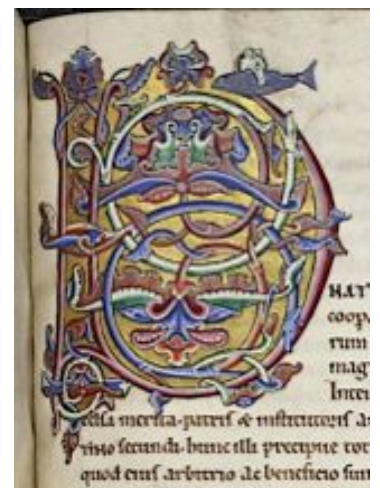 HAT
coop
rum
mag
Inter
merita patris & institutoris
secundi. hunc illi precipue
quod eius arbitrio ac beneficio